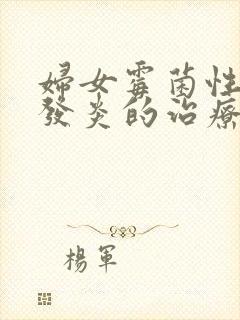 婦女霉菌性
發炎的治療
楊軍